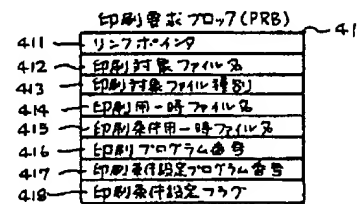 印刷要求ブロック(PRB)
41
411 リンクポインタ
412 印刷対象ファイル名
413 印刷対象ファイル種別
414 印刷用一時ファイル名
415 印刷条件用一時ファイル名
416 印刷プログラム番号
417 印刷条件設定プログラム番号
418 印刷条件設定フラグ